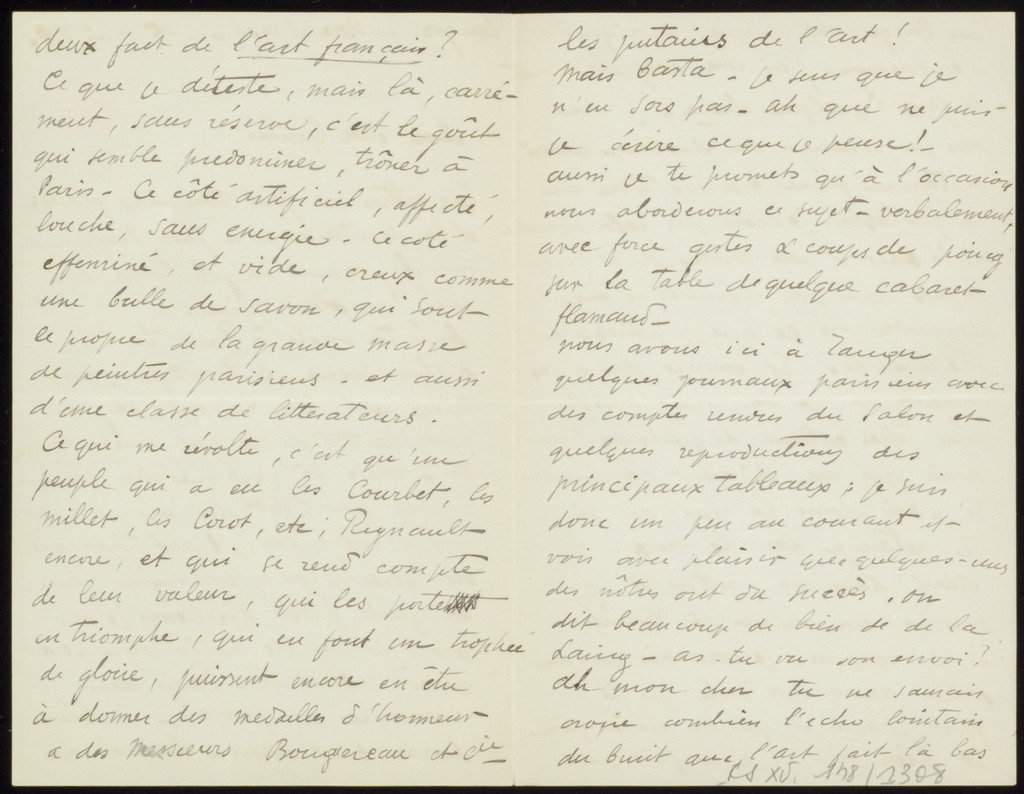 deux fait de l'art français ?
Ce que je déteste, mais là, carré-
ment, sans réserve, c'est le goût
qui semble predominer, trôner à
Paris - Ce côté artificiel, affecté,
louche, sans energie - Ce coté
effeminé, et vide, creux comme
une bulle de savon, qui sont
le propre de la grande masse
de peintres parisiens - et aussi
d'une classe de litterateurs.
Ce qui me révolte, c'est qu'un
peuple qui a eu les Courbet, les
Millet, les Corot, etc ; Regnault
encore, et qui se rend compte
de leur valeur, qui les porte
en triomphe, qui en font un trophée
de gloire, puissent encore en être
à donner des medailles d'honneur
a des Messieurs Bougereau et Cie -
les putains de l'art !
Mais Basta - je sens que je
n'en sors pas - ah que ne puis
je écrire ce que je pense ! -
aussi je te promets qu'à l'occasion
nous aborderons ce sujet - verbalement,
avec force gestes & coups de poing
sur la table de quelque cabaret
flamand -
nous avons ici à Tanger
quelques journaux parisiens avec
des comptes rendus du Salon et
quelques reproductions des
principaux tableaux ; je suis
donc un peu au courant et
vois avec plaisir que quelques-uns
des nôtres ont du succès. on
dit beaucoup de bien de de la
Laing - as-tu vu son envoi ?
ah mon cher tu ne saurais
croire combien l'echo lointain
du bruit que l'art fait là bas
FS XV. 148/1308